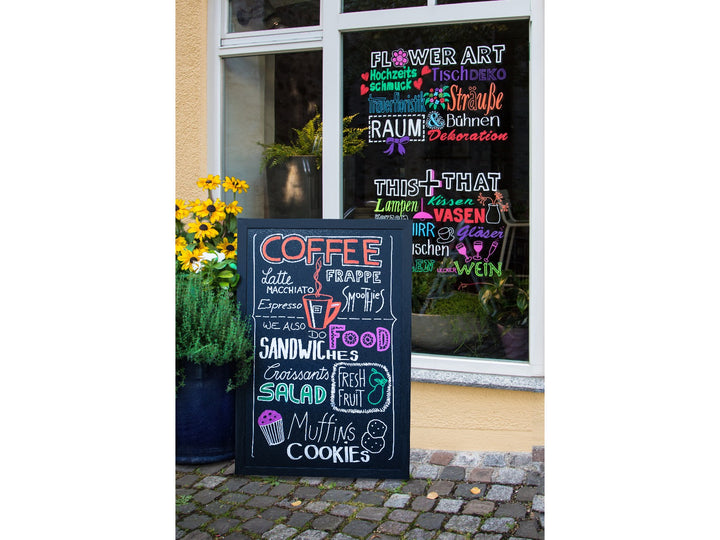 FLOWER ART
Hochzeits
schmuck
TischDEKO
Trauerfloristik
Sträuße
RAUM
& Bühnen
Dekoration
THIS + THAT
Lampen
Kissen
VASEN
Gläser
WEIN
COFFEE
Latte
MACCHIATO
FRAPPE
Espresso
Smoothies
WE ALSO DO
FOOD
SANDWICHES
Croissants
SALAD
FRESH
FRUIT
Muffins
COOKIES